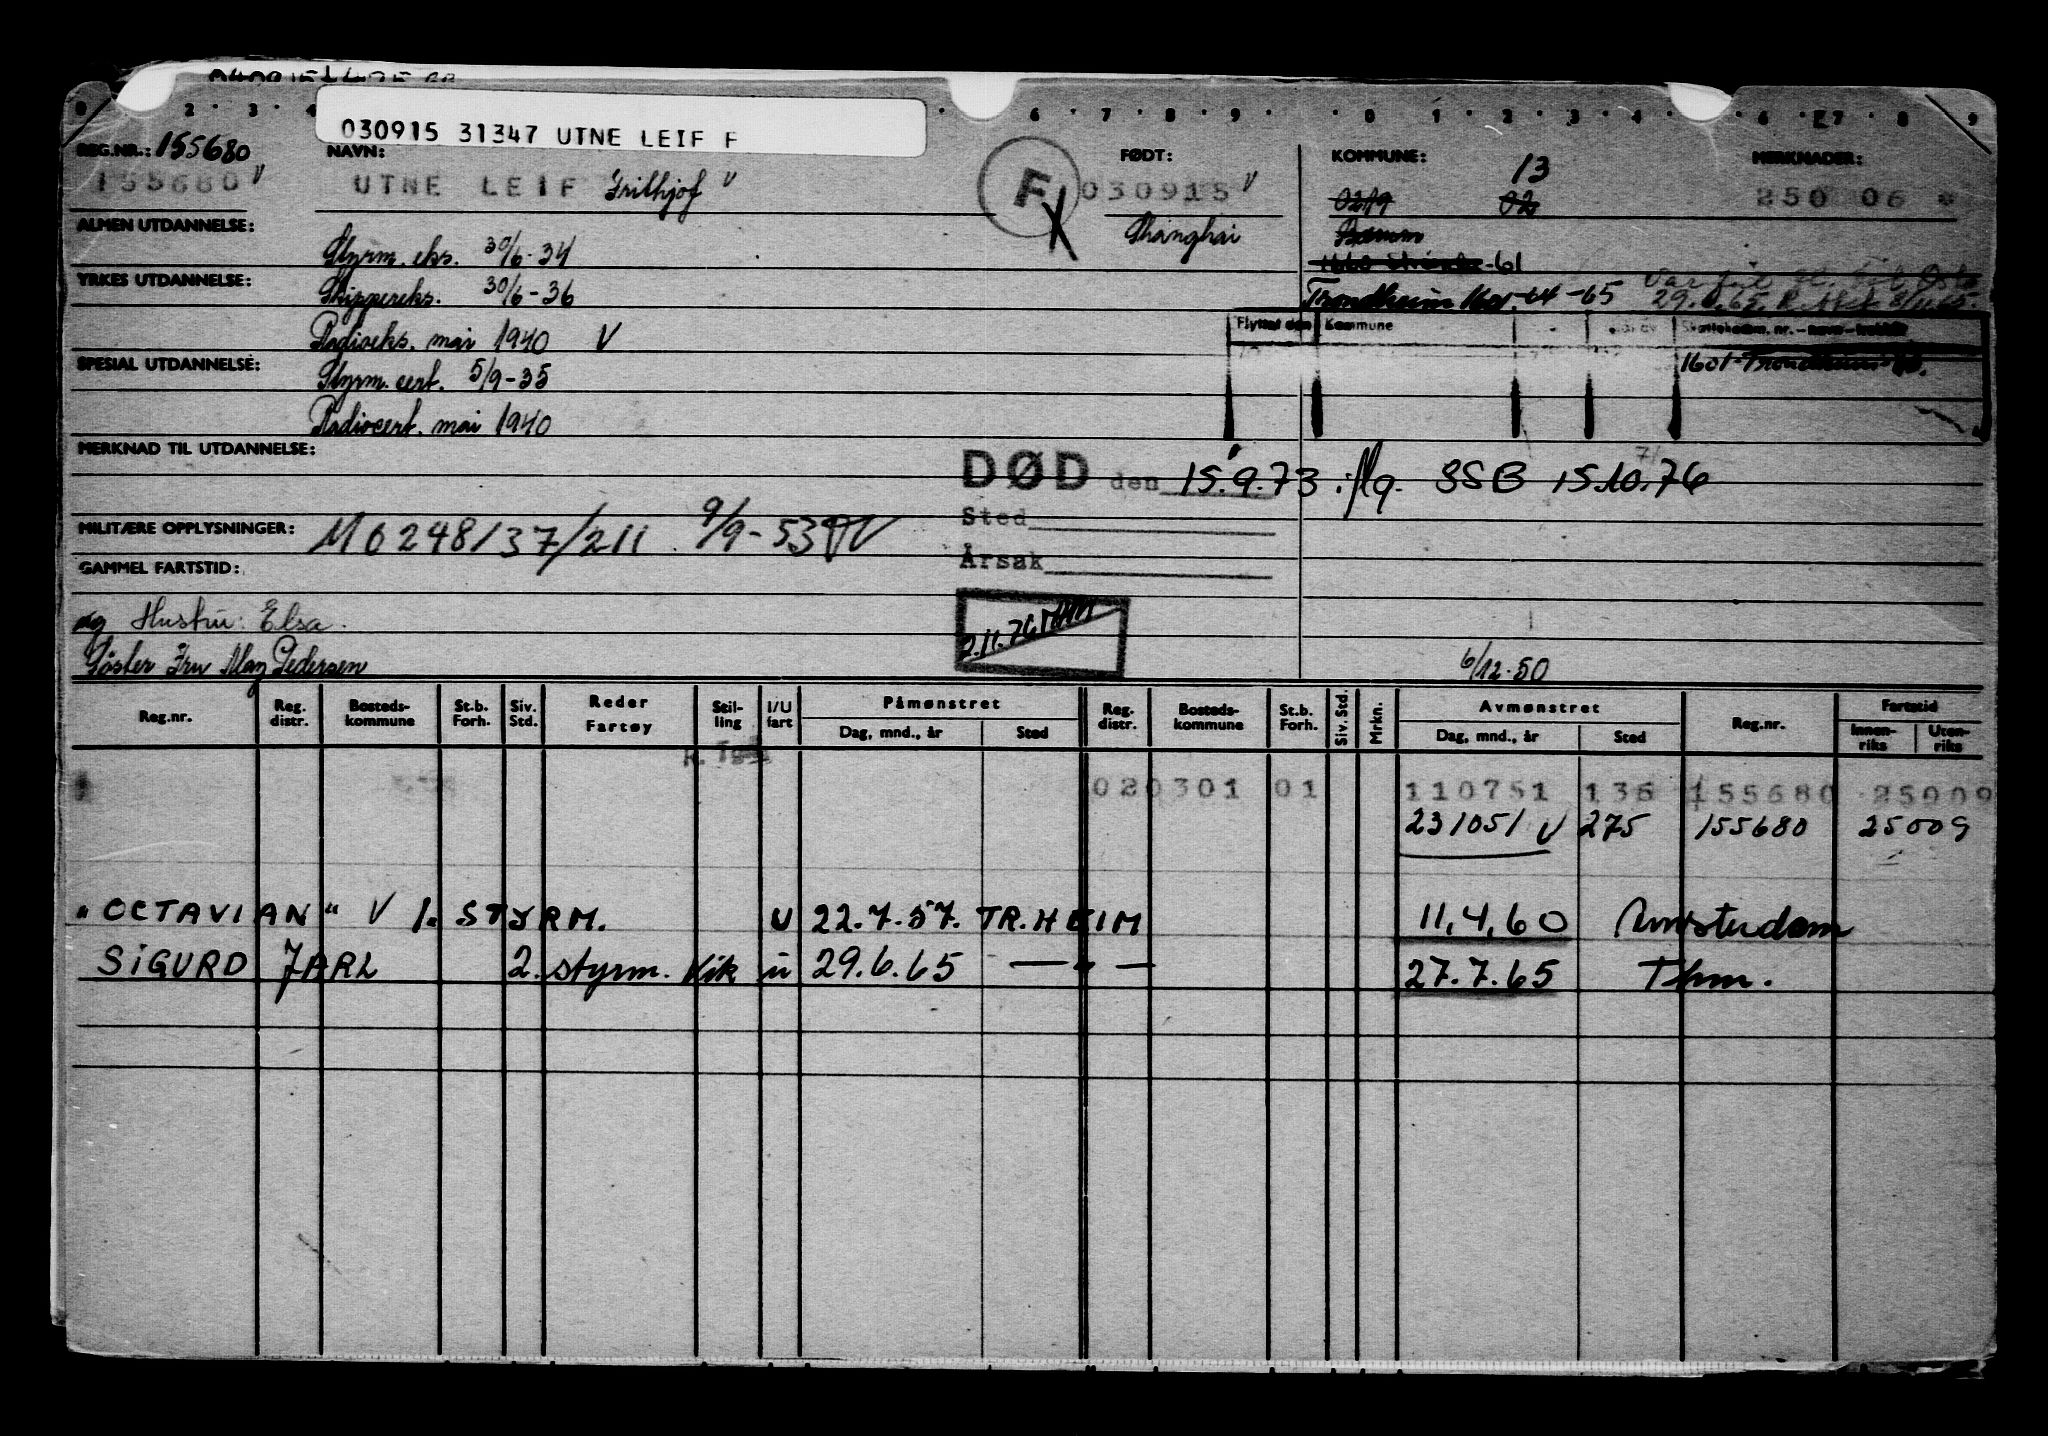 030915 31347 UTNE LEIF F
REG.NR.: 155680 NAVN: FØDT: KOMMUNE: 13 MERKNADER:
155680 V UTNE LEIF Frithjof V F 030915 V 0219 02 250 06
ALMEN UTDANNELSE: Shanghai
Styrm. eks. 30/6-34
-61
YRKES UTDANNELSE: Skippereks. 30/6-36 Trondheim 1601-64-65
Flyttet den Kommune
Radioeks. mai 1940 V
1601 Trondheim
SPESIAL UTDANNELSE: Styrm. cert. 5/9-35
Radiocert. mai 1940
MERKNAD TIL UTDANNELSE:
DØD den 15.9.73 iflg. SSB 15.10.76
Sted
MILITÆRE OPPLYSNINGER: 9/9-53
Årsak
GAMMEL FARTSTID:
og Hustru: Elsa.
2.11.76
Søster Fru May Pedersen 6/12-50
Reg.nr. Reg. distr. Bosteds-kommune St.b. Forh. Siv. Std. Reder Fartøy Stil-ling I/U fart Påmønstret Dag, mnd., år Sted Reg. distr. Bosteds-kommune St.b. Forh. Siv. Std. Mrkn. Avmønstret Dag, mnd., år Sted Reg.nr. Fartstid Innen-riks Uten-riks
020301 01 110751 136 155680 25009
231051 V 275 155680 25009
"OCTAVIAN" V 1. STYRM. U 22.7.57. TR.HEIM 11.4.60 Amsterdam
SIGURD JARL 2. styrm. Vik u 29.6.65 — " — 27.7.65 Thm.